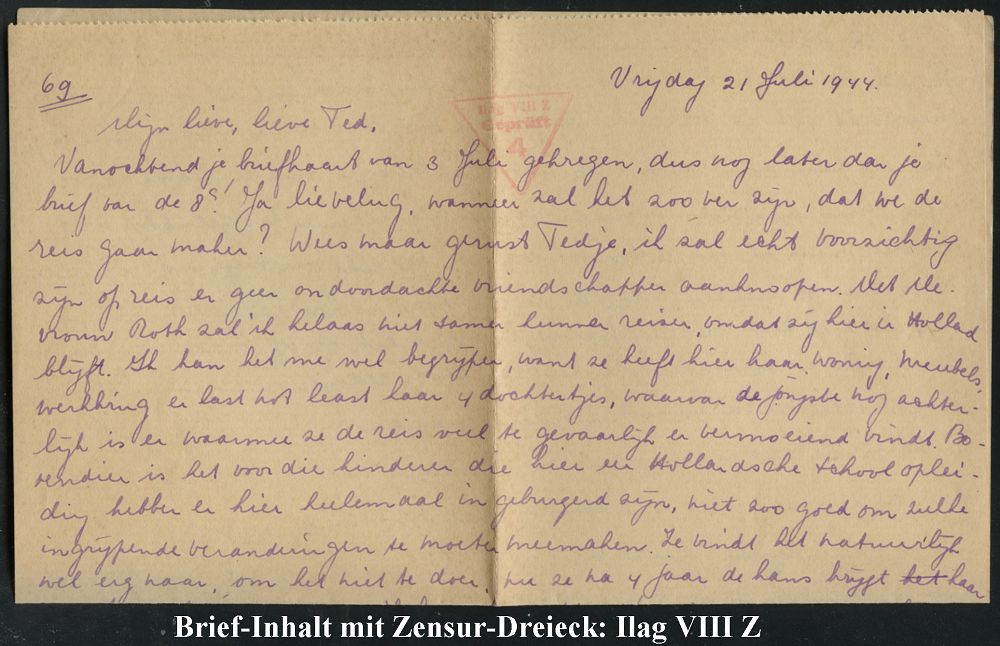 69
Vrijdag 21 Juli 1944.
Ilag VIII Z
Geprüft
4
Mijn lieve, lieve Ted,
Vanochtend je briefkaart van 3 Juli gekregen, dus nog later dan je
brief van de 8e! Ja lieveling, wanneer zal het zoo ver zijn, dat we de
reis gaan maken? Wees maar gerust Tedje, ik zal echt voorzichtig
zijn op reis en geen ondoordachte vriendschappen aanknoopen. Met Me-
vrouw Roth zal ik helaas niet samen kunnen reizen, omdat zij hier in Holland
blijft. Ik kan het me wel begrijpen, want ze heeft hier haar woning, meubels,
werkkring en last not least haar 4 dochtertjes, waarvan de jongste nog achter-
lijk is en waarmee ze de reis veel te gevaarlijk en vermoeiend vindt. Bo-
vendien is het voor die kinderen die hier een Hollandsche schooloplei-
ding hebben en hier heelemaal ingeburgerd zijn, niet zoo goed om zulke
ingrijpende veranderingen te moeten meemaken. Ze vindt het natuurlijk
wel erg naar, om het niet te doen, nu ze na 4 jaar de kans krijgt het haar
Brief-Inhalt mit Zensur-Dreieck: Ilag VIII Z